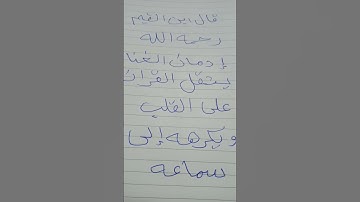 قال ابن القيم
رحمه الله
إدمان الغنا
يثقل القران
على القلب
ويكرهه إلى
سماعه